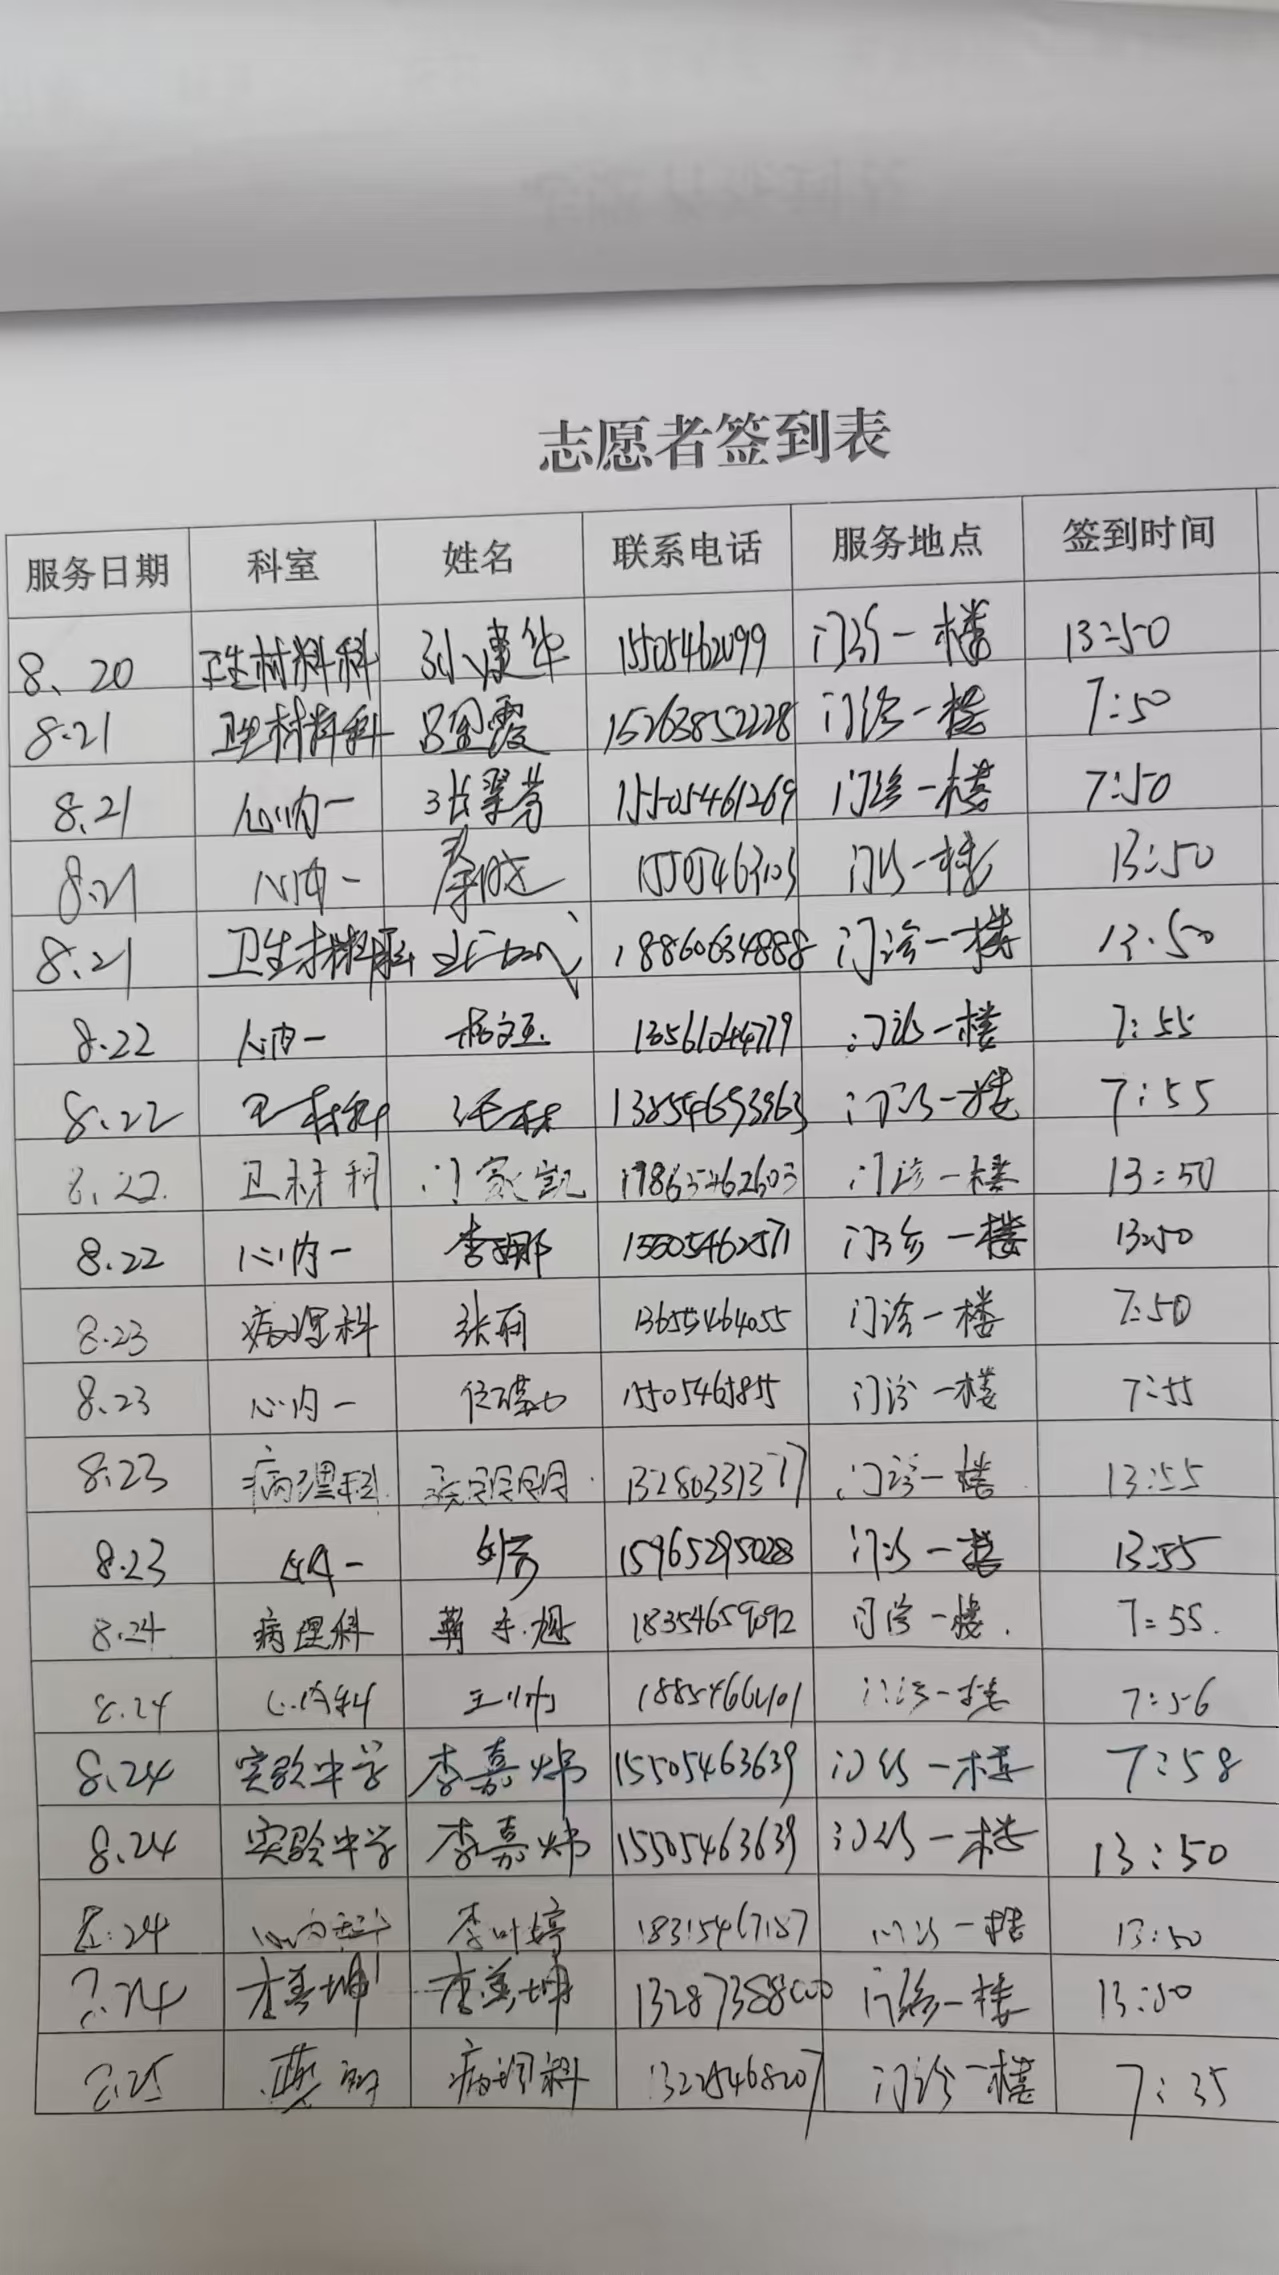 志愿者签到表
服务日期 科室 姓名 联系电话 服务地点 签到时间
8、20 卫生材料科 孙建华 15505462099 门诊一楼 13:50
8.21 卫生材料科 吕金霞 15263852228 门诊一楼 7:50
8.21 心内一 张翠芳 15505461269 门诊一楼 7:50
8.21 心内一 15505463103 门诊一楼 13:50
8.21 卫生材料科 18860634888 门诊一楼 13:50
8.22 心内一 杨文玉 13561044779 门诊一楼 7:55
8.22 卫材科 13854653963 门诊一楼 7:55
8.22 卫材科 门家凯 门诊一楼 13:50
8.22 心内一 李娜 15505462571 门诊一楼 13:50
8.23 病理科 张丽 13655464055 门诊一楼 7:50
8.23 心内一 15505465855 门诊一楼 7:55
8.23 病理科 13280331377 门诊一楼 13:55
8.23 心内一 15965295028 门诊一楼 13:55
8.24 病理科 18354659092 门诊一楼. 7:55.
8.24 心内科 王帅 门诊一楼 7:56
8.24 实验中学 李嘉炜 15505463639 门诊一楼 7:58
8.24 实验中学 李嘉炜 15505463639 门诊一楼 13:50
8.24 心内科 李叶婷 18315467187 门诊一楼 13:50
8.24 李美坤 李美坤 13287388000 门诊一楼 13:50
8.25 燕丽 病理科 13225468207 门诊一楼 7:35